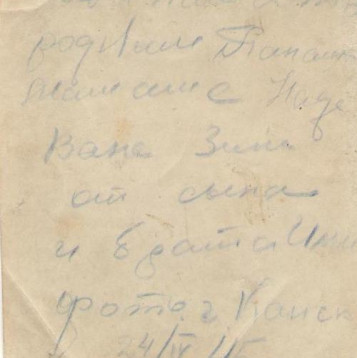 родным Папаш
мамаше Наде
Ване Зине
от сына
и брата Ми
фото г Канск
24/IV 45